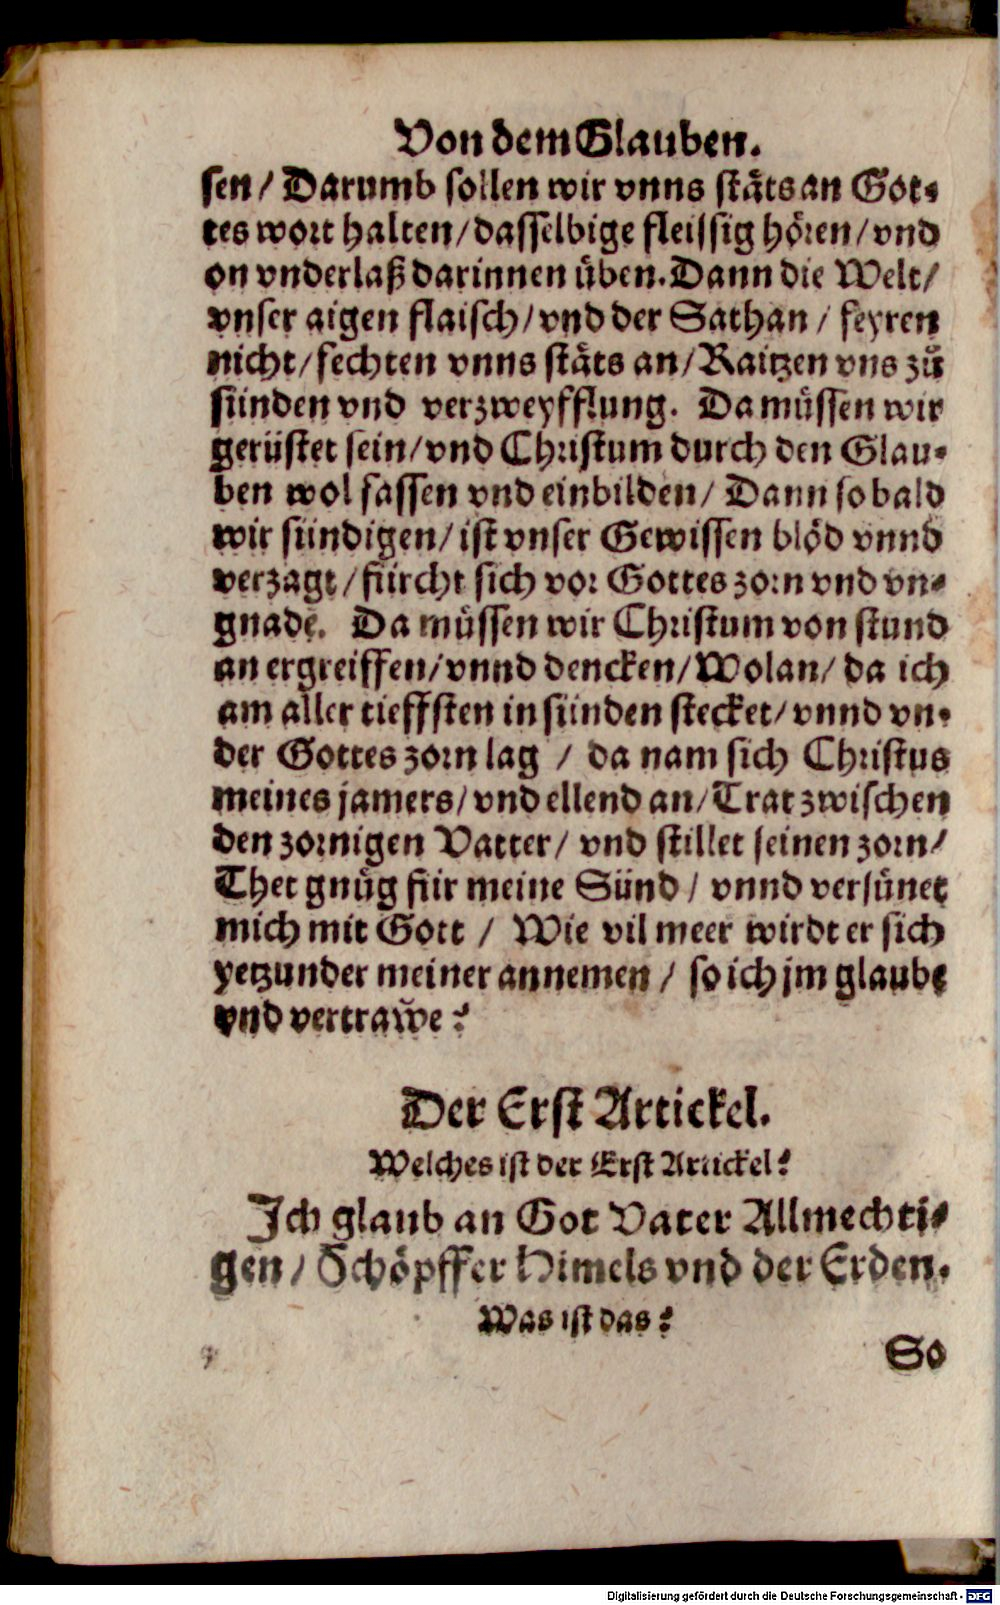 Von dem Glauben.
sen / Darumb sollen wir vnns stäts an Got-
tes wort halten / dasselbige fleissig hören / vnd
on vnderlaß darinnen üben. Dann die Welt /
vnser aigen flaisch / vnd der Sathan / feyren
nicht / fechten vnns stäts an / Raitzen vns zů
sünden vnd verzweyfflung. Da müssen wir
gerüstet sein / vnd Christum durch den Glau-
ben wol fassen vnd einbilden / Dann so bald
wir sündigen / ist vnser Gewissen blöd vnnd
verzagt / fürcht sich vor Gottes zorn vnd vn-
gnade. Da müssen wir Christum von stund
an ergreiffen / vnnd dencken / Wolan / da ich
am aller tieffsten in sünden stecket / vnnd vn-
der Gottes zorn lag / da nam sich Christus
meines jamers / vnd ellend an / Trat zwischen
den zornigen Vatter / vnd stillet seinen zorn /
Thet gnůg für meine Sünd / vnnd versünet
mich mit Gott / Wie vil meer wirdt er sich
yetzunder meiner annemen / so ich jm glaube
vnd vertrawe?
Der Erst Artickel.
Welches ist der Erst Artickel?
Ich glaub an Got Vater Allmechti-
gen / Schöpffer Himels vnd der Erden.
Was ist das?
So
Digitalisierung gefördert durch die Deutsche Forschungsgemeinschaft - DFG